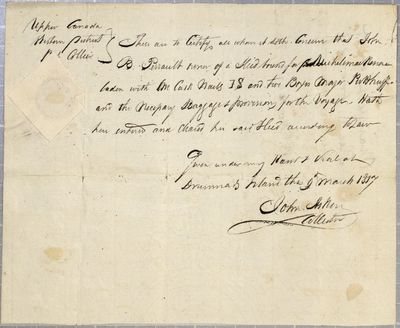 Upper Canada
Western District
Pt Collier
These are to Certify all whom it doth Concern that John
B. Perrault owner of a Sled bound for Michilimackinac
laden with One Cask Nails IB and two Boxes Major Puthuff
and the Necessary Baggage & provision for the Voyage. Hath
here entered and Cleared her said Sled according to Law
Given under my Hand & Seal at
Drummd's Island the 9th March 1817
John Askin
Collector